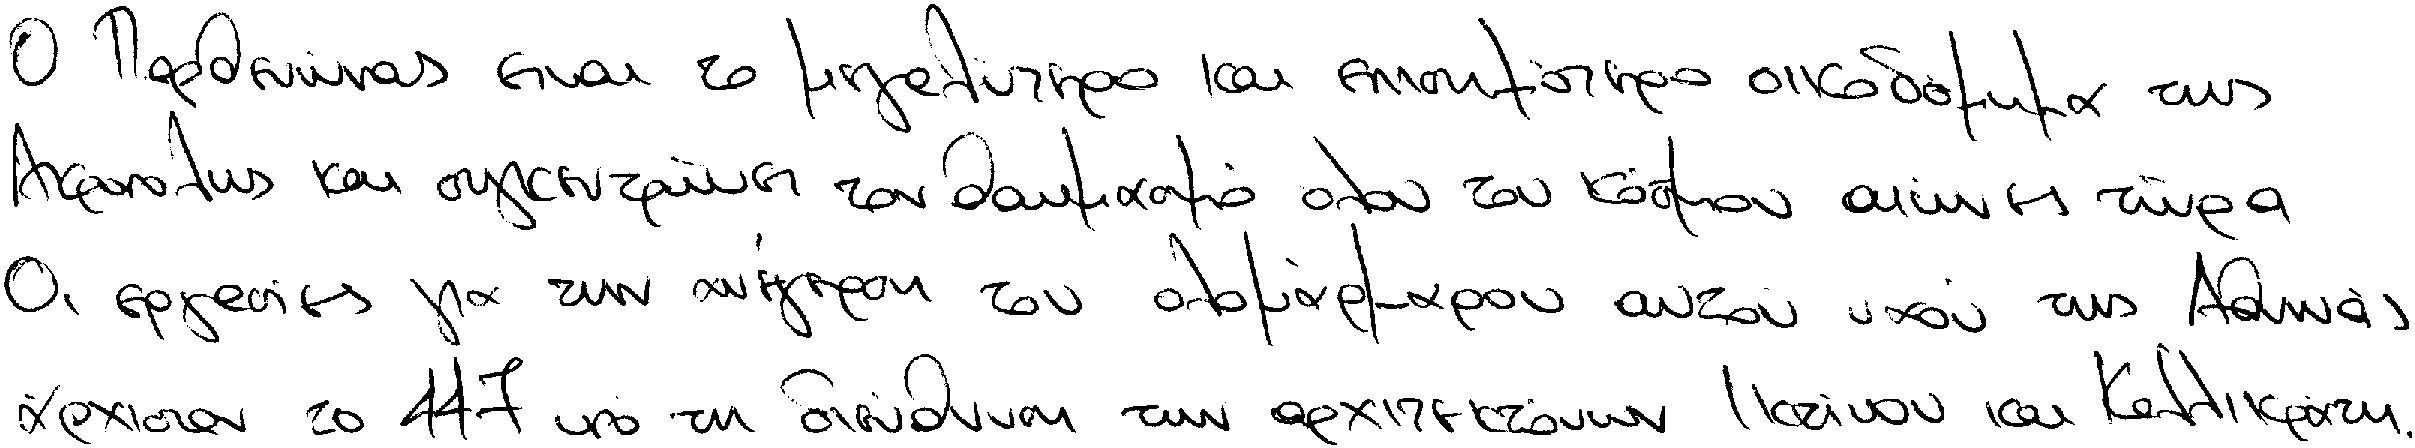 Ο Παρθενώνας είναι το μεγαλύτερο και επισημότερο οικοδόμημα της
Ακρόπολης και συγκεντρώνει τον θαυμασμό όλου του κόσμου αιώνες τώρα
Οι εργασίες για την ανέγερση του ολομάρμαρου αυτού ναού της Αθηνάς
άρχισαν το 447 υπό τη διεύθυνση των αρχιτεκτόνων Ικτίνου και Καλλικράτη.